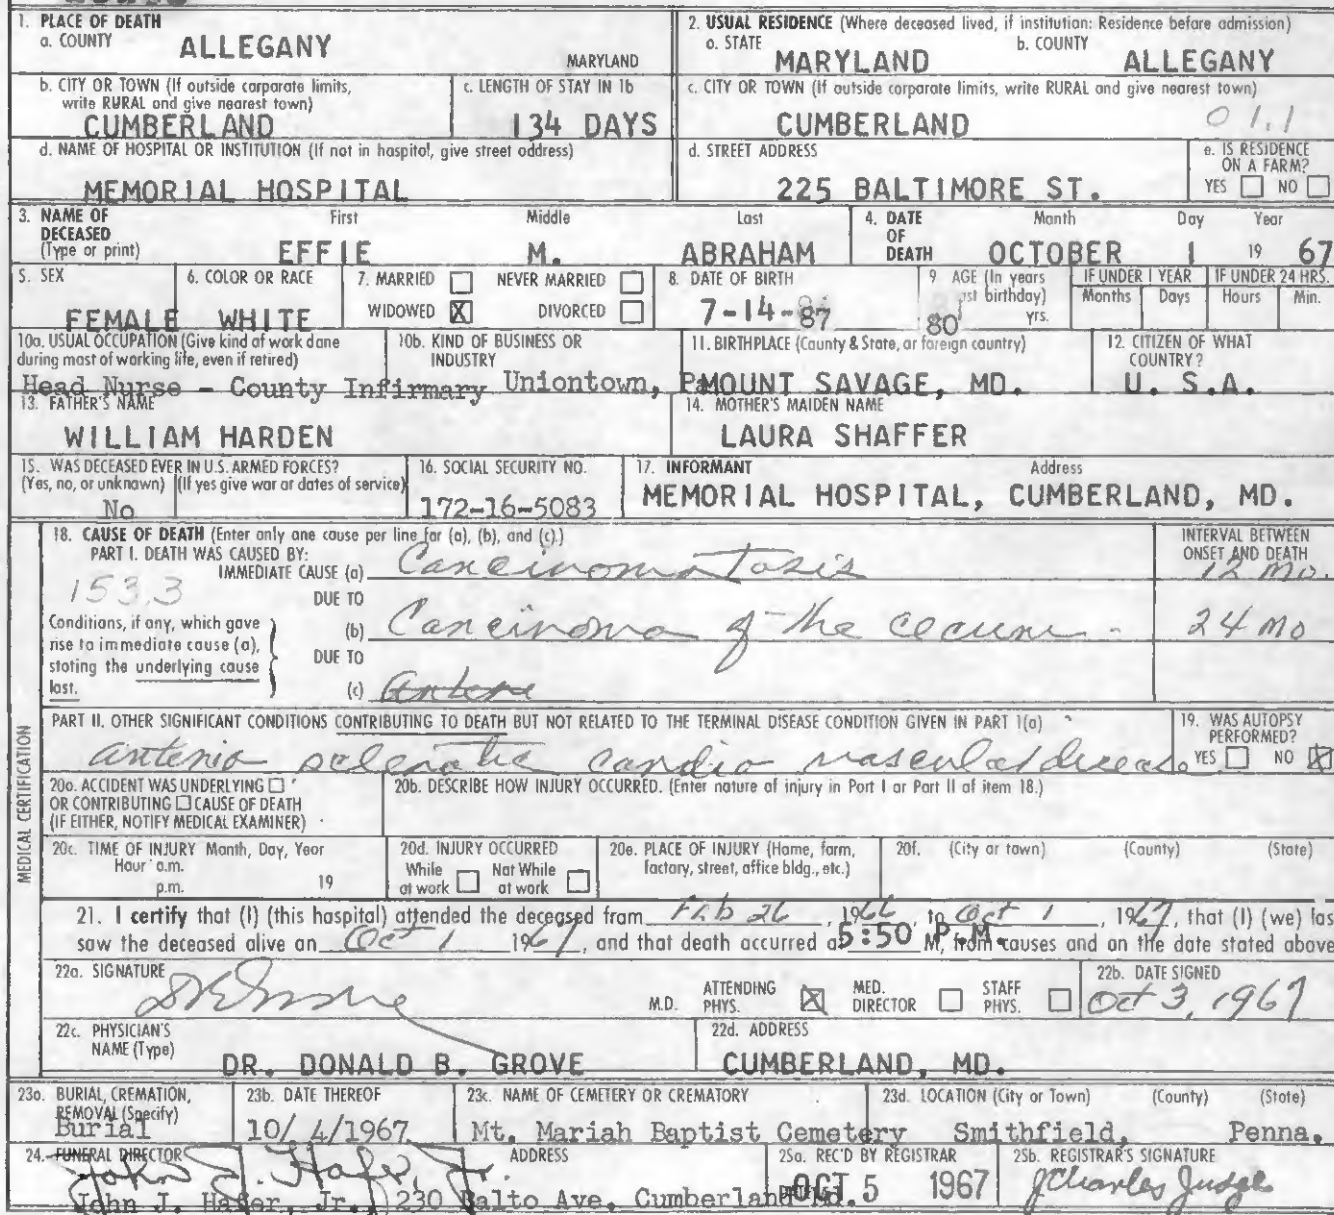 1. PLACE OF DEATH
a. COUNTY ALLEGANY MARYLAND
2. USUAL RESIDENCE (Where deceased lived, if institution: Residence before admission)
a. STATE MARYLAND b. COUNTY ALLEGANY
b. CITY OR TOWN (If outside corporate limits, write RURAL and give nearest town)
CUMBERLAND
c. LENGTH OF STAY IN 1b
134 DAYS
c. CITY OR TOWN (If outside corporate limits, write RURAL and give nearest town)
CUMBERLAND 01.1
d. NAME OF HOSPITAL OR INSTITUTION (If not in hospital, give street address)
MEMORIAL HOSPITAL
d. STREET ADDRESS
225 BALTIMORE ST.
e. IS RESIDENCE ON A FARM?
YES NO
3. NAME OF DECEASED (Type or print)
First Middle Last
EFFIE M. ABRAHAM
4. DATE OF DEATH
Month Day Year
OCTOBER 1 19 67
5. SEX
FEMALE
6. COLOR OR RACE
WHITE
7. MARRIED NEVER MARRIED
WIDOWED X DIVORCED
8. DATE OF BIRTH
7-14-87
9. AGE (In years last birthday)
80 yrs.
IF UNDER 1 YEAR
Months Days
IF UNDER 24 HRS.
Hours Min.
10a. USUAL OCCUPATION (Give kind of work done during most of working life, even if retired)
Head Nurse - County Infirmary
10b. KIND OF BUSINESS OR INDUSTRY
Uniontown, Pa
11. BIRTHPLACE (County & State, or foreign country)
MOUNT SAVAGE, MD.
12. CITIZEN OF WHAT COUNTRY?
U. S.A.
13. FATHER'S NAME
WILLIAM HARDEN
14. MOTHER'S MAIDEN NAME
LAURA SHAFFER
15. WAS DECEASED EVER IN U.S. ARMED FORCES?
(Yes, no, or unknown) (If yes give war or dates of service)
No
16. SOCIAL SECURITY NO.
172-16-5083
17. INFORMANT Address
MEMORIAL HOSPITAL, CUMBERLAND, MD.
MEDICAL CERTIFICATION
18. CAUSE OF DEATH (Enter only one cause per line for (a), (b), and (c).)
PART I. DEATH WAS CAUSED BY:
IMMEDIATE CAUSE (a) Carcinomatosis
INTERVAL BETWEEN ONSET AND DEATH
12 mo.
153.3
Conditions, if any, which gave rise to immediate cause (a), stating the underlying cause last.
DUE TO
(b) Carcinoma of the cecum - 24 mo
DUE TO
(c)
PART II. OTHER SIGNIFICANT CONDITIONS CONTRIBUTING TO DEATH BUT NOT RELATED TO THE TERMINAL DISEASE CONDITION GIVEN IN PART I(a)
arterio sclerotic cardio vascular disease
19. WAS AUTOPSY PERFORMED?
YES NO X
20a. ACCIDENT WAS UNDERLYING
OR CONTRIBUTING CAUSE OF DEATH
(IF EITHER, NOTIFY MEDICAL EXAMINER)
20b. DESCRIBE HOW INJURY OCCURRED. (Enter nature of injury in Part I or Part II of item 18.)
20c. TIME OF INJURY Month, Day, Year
Hour a.m.
p.m. 19
20d. INJURY OCCURRED
While at work Not While at work
20e. PLACE OF INJURY (Home, farm, factory, street, office bldg., etc.)
20f. (City or town) (County) (State)
21. I certify that (I) (this hospital) attended the deceased from Feb 26, 1966, to Oct 1, 1967, that (I) (we) las
saw the deceased alive on Oct 1 1967, and that death occurred a 5:50 P.M. M, from causes and on the date stated above
22a. SIGNATURE
DB Grove M.D.
ATTENDING PHYS. X MED. DIRECTOR STAFF PHYS.
22b. DATE SIGNED
Oct 3, 1967
22c. PHYSICIAN'S NAME (Type)
DR. DONALD B. GROVE
22d. ADDRESS
CUMBERLAND, MD.
23a. BURIAL, CREMATION, REMOVAL (Specify)
Burial
23b. DATE THEREOF
10/ 4/1967
23c. NAME OF CEMETERY OR CREMATORY
Mt. Mariah Baptist Cemetery
23d. LOCATION (City or Town) (County) (State)
Smithfield, Penna.
24. FUNERAL DIRECTOR ADDRESS
John J. Hafer, Jr.
John J. Hafer, Jr. 230 Balto Ave. Cumberland Md.
25a. REC'D BY REGISTRAR
OCT 5 1967
25b. REGISTRAR'S SIGNATURE
J Charles Judge